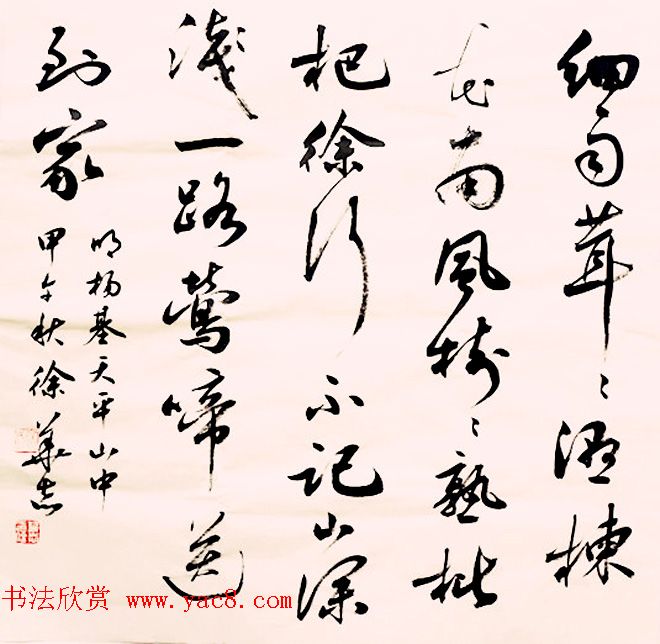 細雨茸〻湿楝
花南風樹〻熟枇
杷徐行不記山深
淺一路鶯啼送
到家
明楊基天平山中
甲午秋徐華志
书法欣赏 www.yac8.com